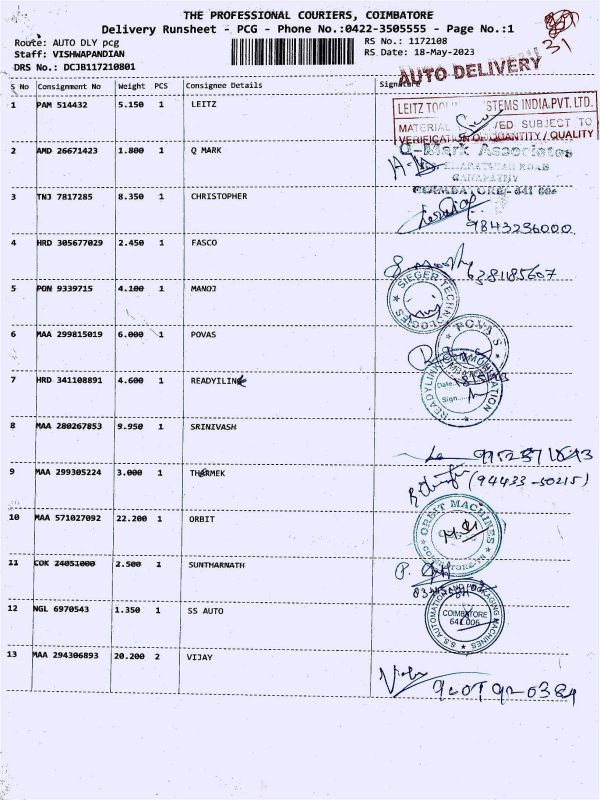 THE PROFESSIONAL COURIERS, COIMBATORE
Delivery Runsheet - PCG - Phone No.:0422-3505555 - Page No.:1
Route: AUTO DLY pcg RS No.: 1172108
Staff: VISHWAPANDIAN RS Date: 18-May-2023
DRS No.: DCJB117210801
31
AUTO DELIVERY
S No Consignment No Weight PCS Consignee Details Signature
1 PAM 514432 5.150 1 LEITZ
LEITZ TOOLING SYSTEMS INDIA PVT. LTD.
MATERIAL RECEIVED SUBJECT TO
VERIFICATION OF QUANTITY / QUALITY
2 AMD 26671423 1.800 1 Q MARK
Q-Mark Associates
BHARATHIAR ROAD
GANAPATHY
COIMBATORE - 641 006
3 TNJ 7817285 8.350 1 CHRISTOPHER
9843236000
4 HRD 305677029 2.450 1 FASCO
6381185607
5 PON 9339715 4.100 1 MANOJ
SIEGER TECHNOLOGIES
6 MAA 299815019 6.000 1 POVAS
POVA'S
7 HRD 341108891 4.600 1 READYILINK
READYLINK AUTOMATION
Date
Sign
8 MAA 280267853 9.950 1 SRINIVASH
9 MAA 299305224 3.000 1 THERMEK
(94433-50215)
10 MAA 571027092 22.200 1 ORBIT
ORBIT MACHINES
COIMBATORE
11 COK 24051000 2.500 1 SUNTHARNATH
P.
12 NGL 6970543 1.350 1 SS AUTO
S.S AUTOMATION AND PACKAGING MACHINES
COIMBATORE
641 006
13 MAA 294306893 20.200 2 VIJAY